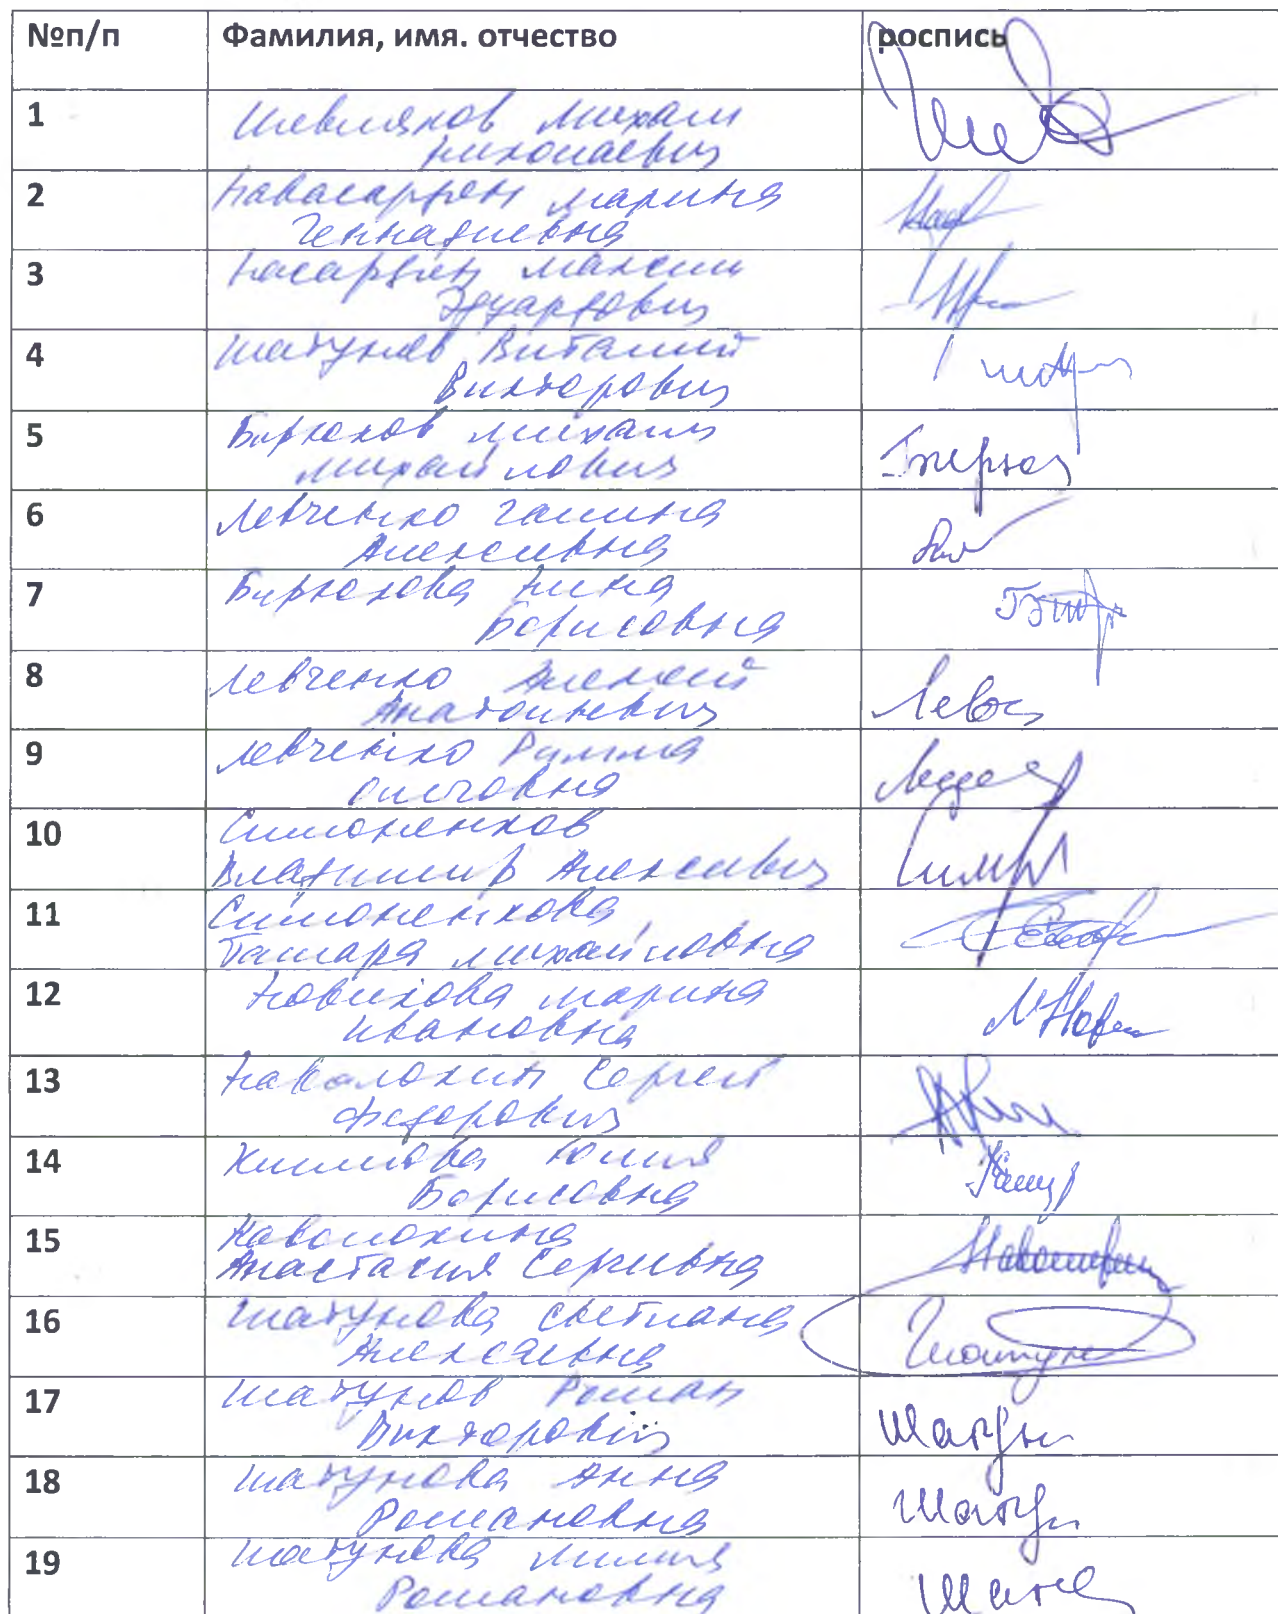 №п/п Фамилия, имя. отчество роспись
1 Шевляков Михаил
Николаевич
2 Навасардян Марина
Геннадиевна
3 Насардян Максим
Эдуардович
4 Шатунов Виталий
Викторович
5 Бирюков Михаил
Михайлович
6 Левченко Галина
Алексивна
7 Бирюкова Нина
Борисовна
8 Левченко Алексей
Анатольевич
9 Левченко Римма
Ольговна
10 Симоненков
Владимир Алексивич
11 Симоненкова
Тамара Михайловна
12 Новикова Марина
Ивановна
13 Наволокин Сергей
Федорович
14 Климова Юлия
Борисовна
15 Наволокина
Анастасия Сергивна
16 Шатунова Светлана
Алексаевна
17 Шатунов Роман
Викторович
18 Шатунова Анна
Романовна
19 Шатунова Лилия
Романовна